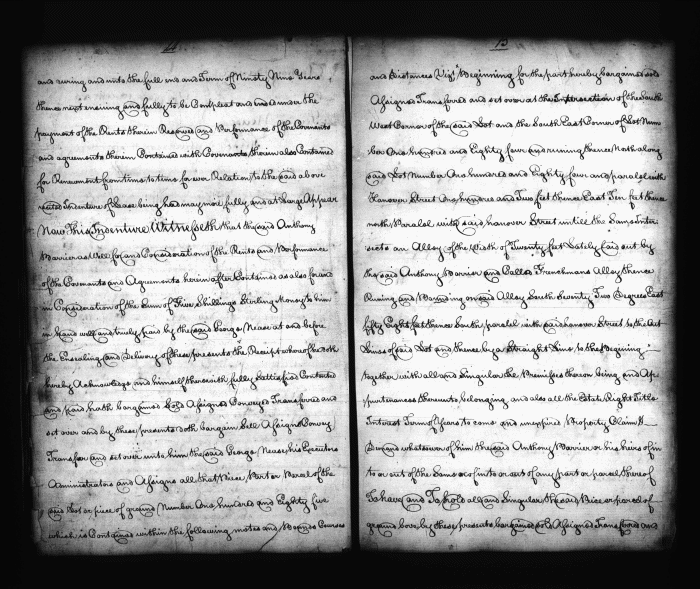 and during and unto the full end and Term of Ninety Nine Years
thence next ensuing and fully to be Compleat and ended under the
payment of the Rents therein Reserved and Performance of the Covenants
and agreements therein Contained with Covenants therein also Contained
for Renewment from time to time for ever Relation to the said above
recited Indenture of Lease being had may more fully and at Large Appear
Now This Indenture Witnesseth that the said Anthony
as Well for and Consideration of the Rents and Performance
of the Covenants and Agreements herein after Contained as also for and
in Consideration of the Sum of Five Shillings Sterling Money to him
in hand well and truly paid by the said George Neace at and before
the Ensealing and Delivery of these presents the Receipt whereof he doth
hereby Acknowledge and himself therewith fully Sattisfied Contented
and paid hath bargained Sold Assigned Conveyed Transferred and
set over and by these presents doth bargain Sell Assign Convey
Transfer and set over unto him the said George Neace his Executors
Administrators and Assigns all that Piece Part or Parcel of the
said Lot or piece of ground Number One hundred and Eighty five
which is Contained within the following metes and Bounds Courses
and Distances Vizt. Beginning for the part hereby bargained sold
Assigned Transferred and set over at the Intersection of the South
West Corner of the said Lot and the South East Corner of Lot Num
ber One hundred and Eighty four and running thence North along
said Lot Number One hundred and Eighty four and paralel with
Hanover Street One hundred and Two feet thence East Ten feet thence
north Paralel with said hanover Street untill the Same Inter
sects an Alley of the Width of Twenty feet Lately laid out by
the said Anthony and Called Frenchmans Alley thence
Runing and Bounding on said Alley South Seventy Two Degrees East
fifty Eight feet thence South paralel with said hanover Street to the Out
Lines of said Lot and thence by a Straight Line to the Begining
together with all and Singular the Premisses thereon being and Ap
purtenances thereunto belonging and also all the Estate Right Title
Interest Term of Years to come and unexpired Property Claim &
Demand whatsoever of him the said Anthony or his heirs of in
to or out of the Same or of in to or out of any part or parcel thereof
To have and To hold all and Singular the said Piece or parcel of
ground by these presents bargained sold Assigned Transferred and